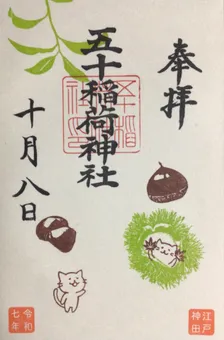 奉拝
五十稲荷神社
十月八日
江戸神田
令和七年